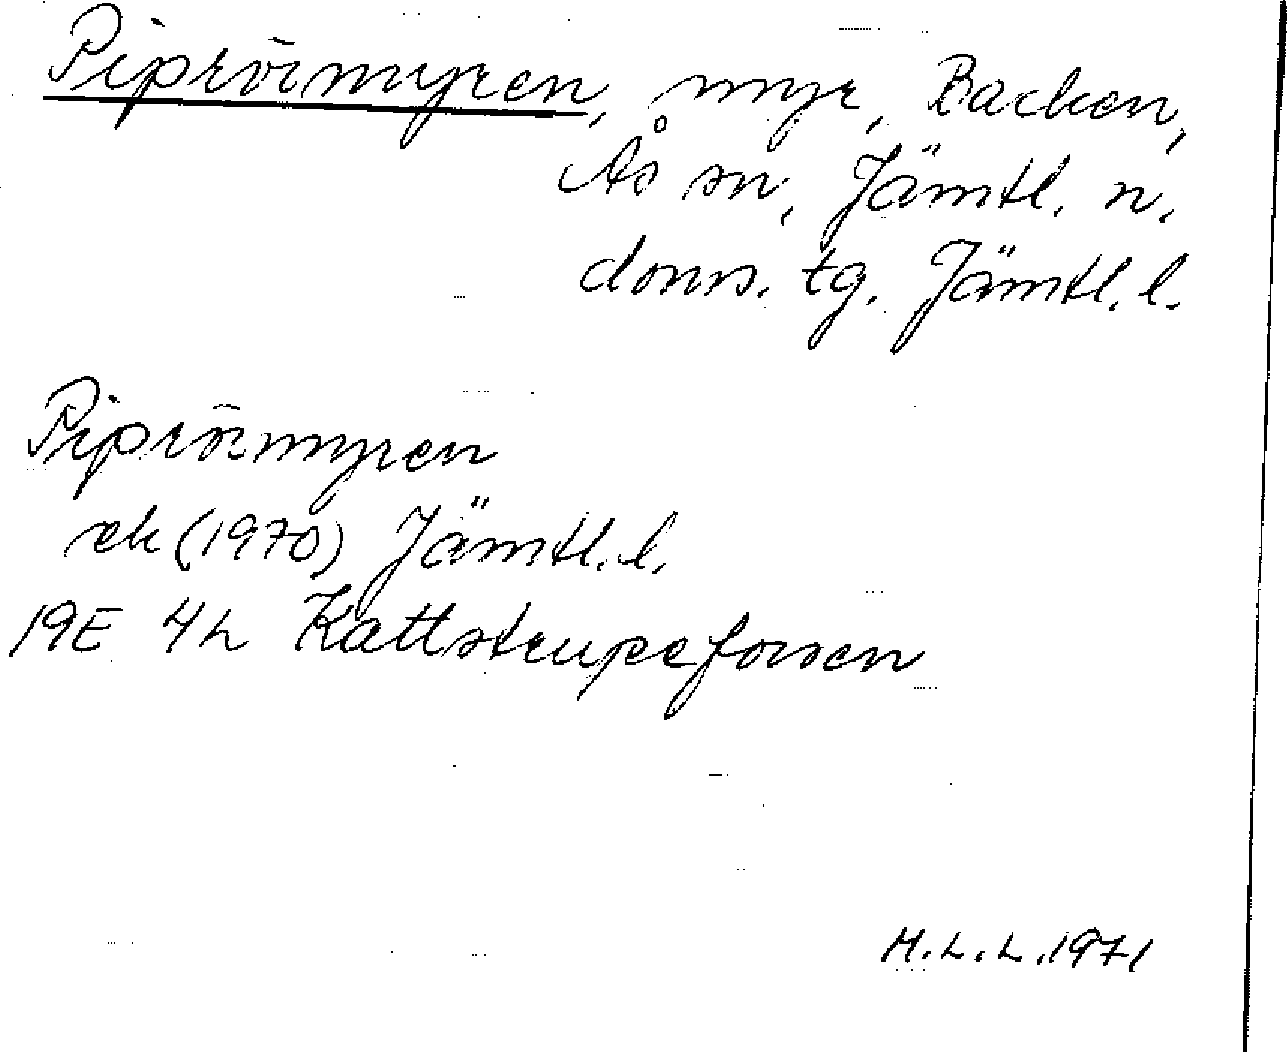 Piprörmyren, myr, Backen,
Ås sn, Jämtl. n.
doms. tg. Jämtl. l.
Piprörmyren
ek (1970) Jämtl. l.
19E 4h Kattstrupeforsen
H.L.L. 1971